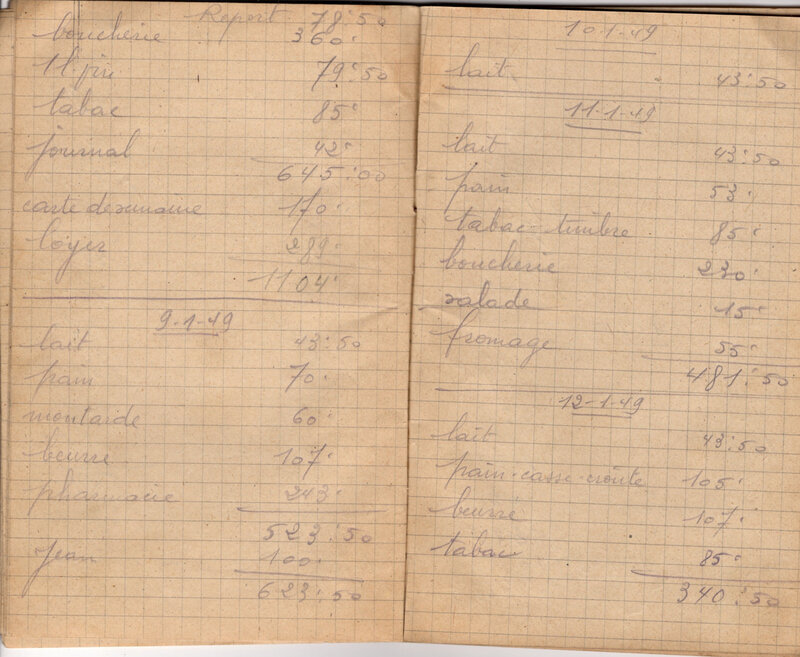 Report 78:50
boucherie 360:
1 l. vin 79:50
tabac 85:
journal 42:
645:00
carte de semaine 170:
loyer 289:
1104:
9-1-49
lait 43:50
pain 70:
moutarde 60:
beurre 107:
pharmacie 243:
523:50
Jean 100:
623:50
10-1-49
lait 43:50
11-1-49
lait 43:50
pain 53:
tabac-timbre 85:
boucherie 230:
salade 15:
fromage 55:
481:50
12-1-49
lait 43:50
pain-casse-croûte 105:
beurre 107:
tabac 85:
340:50